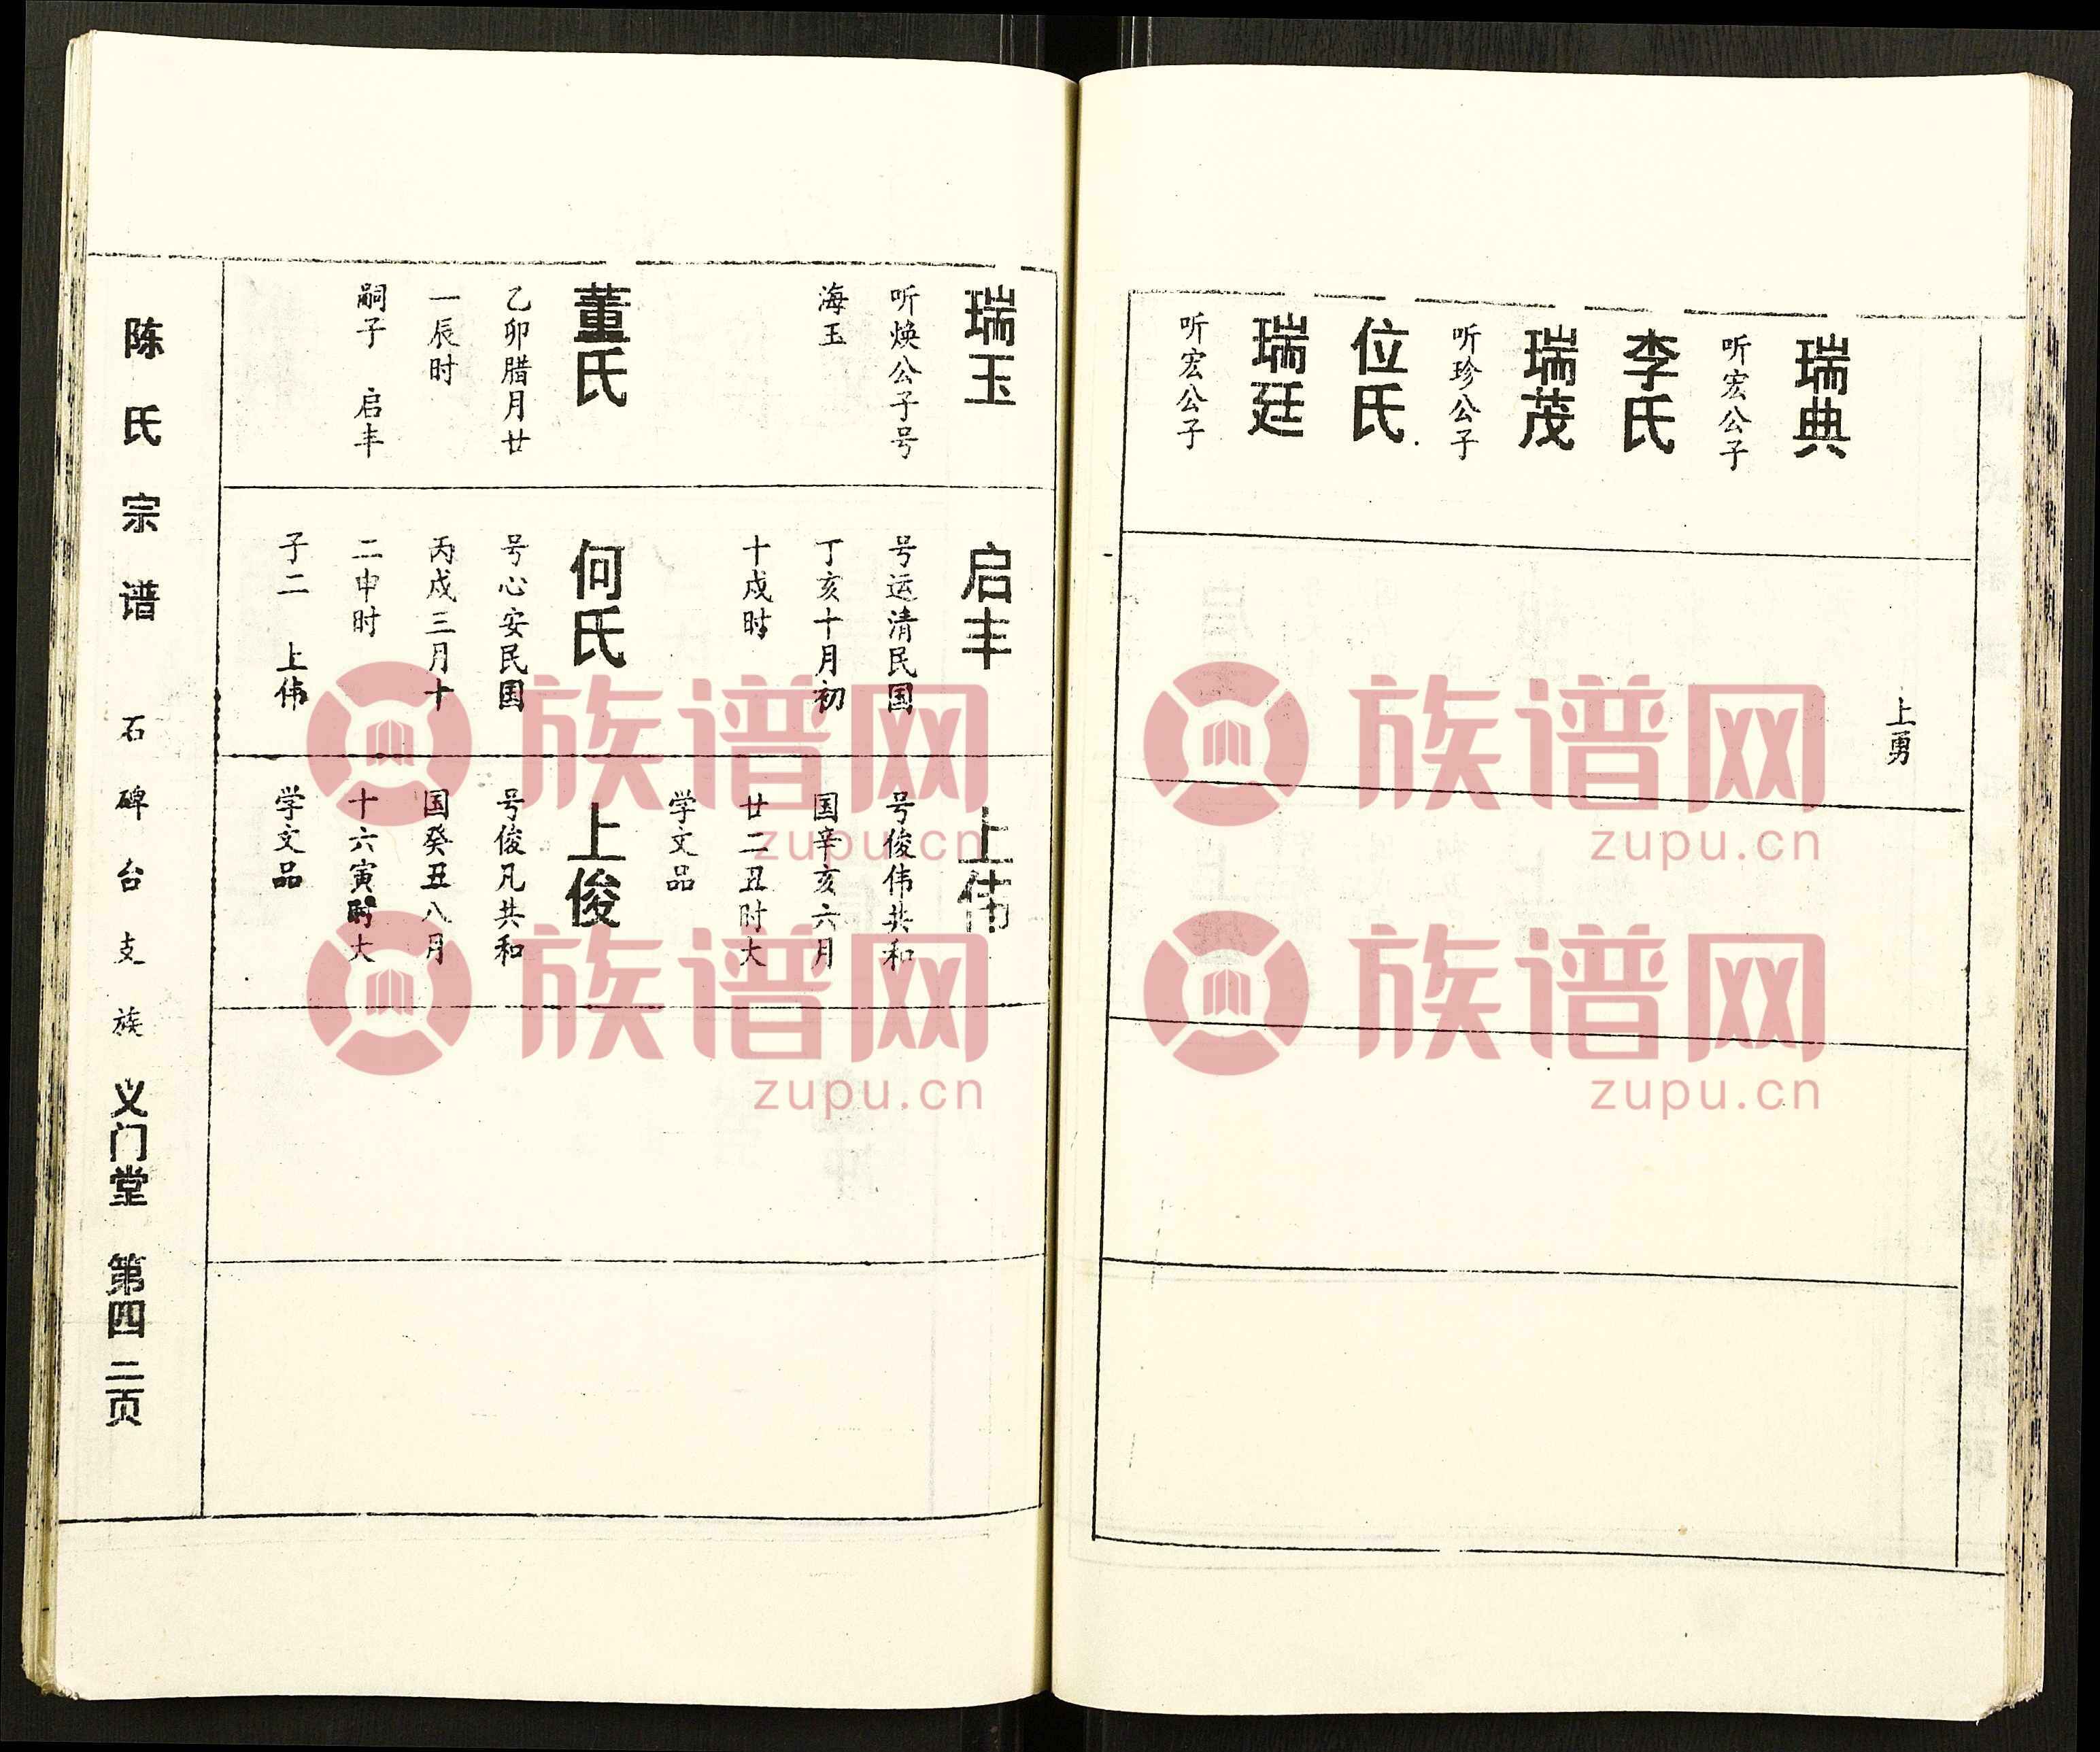 瑞典
听宏公子
李氏
瑞茂
听珍公子
位氏
瑞廷
听宏公子
上勇
瑞玉
听焕公子号
海玉
董氏
乙卯腊月廿
一辰时
嗣子 启丰
启丰
号运清民国
丁亥十月初
十戍时
何氏
号心安民国
丙戍三月十
二申时
子二 上伟
上伟
号俊伟共和
国辛亥六月
廿二丑时大
学文品
上俊
号俊凡共和
国癸丑八月
十六寅时大
学文品
陈氏宗谱 石碑台支族 义门堂 第四二页
族谱网
zupu.cn
族谱网
zupu.cn
族谱网
zupu.cn
族谱网
zupu.cn